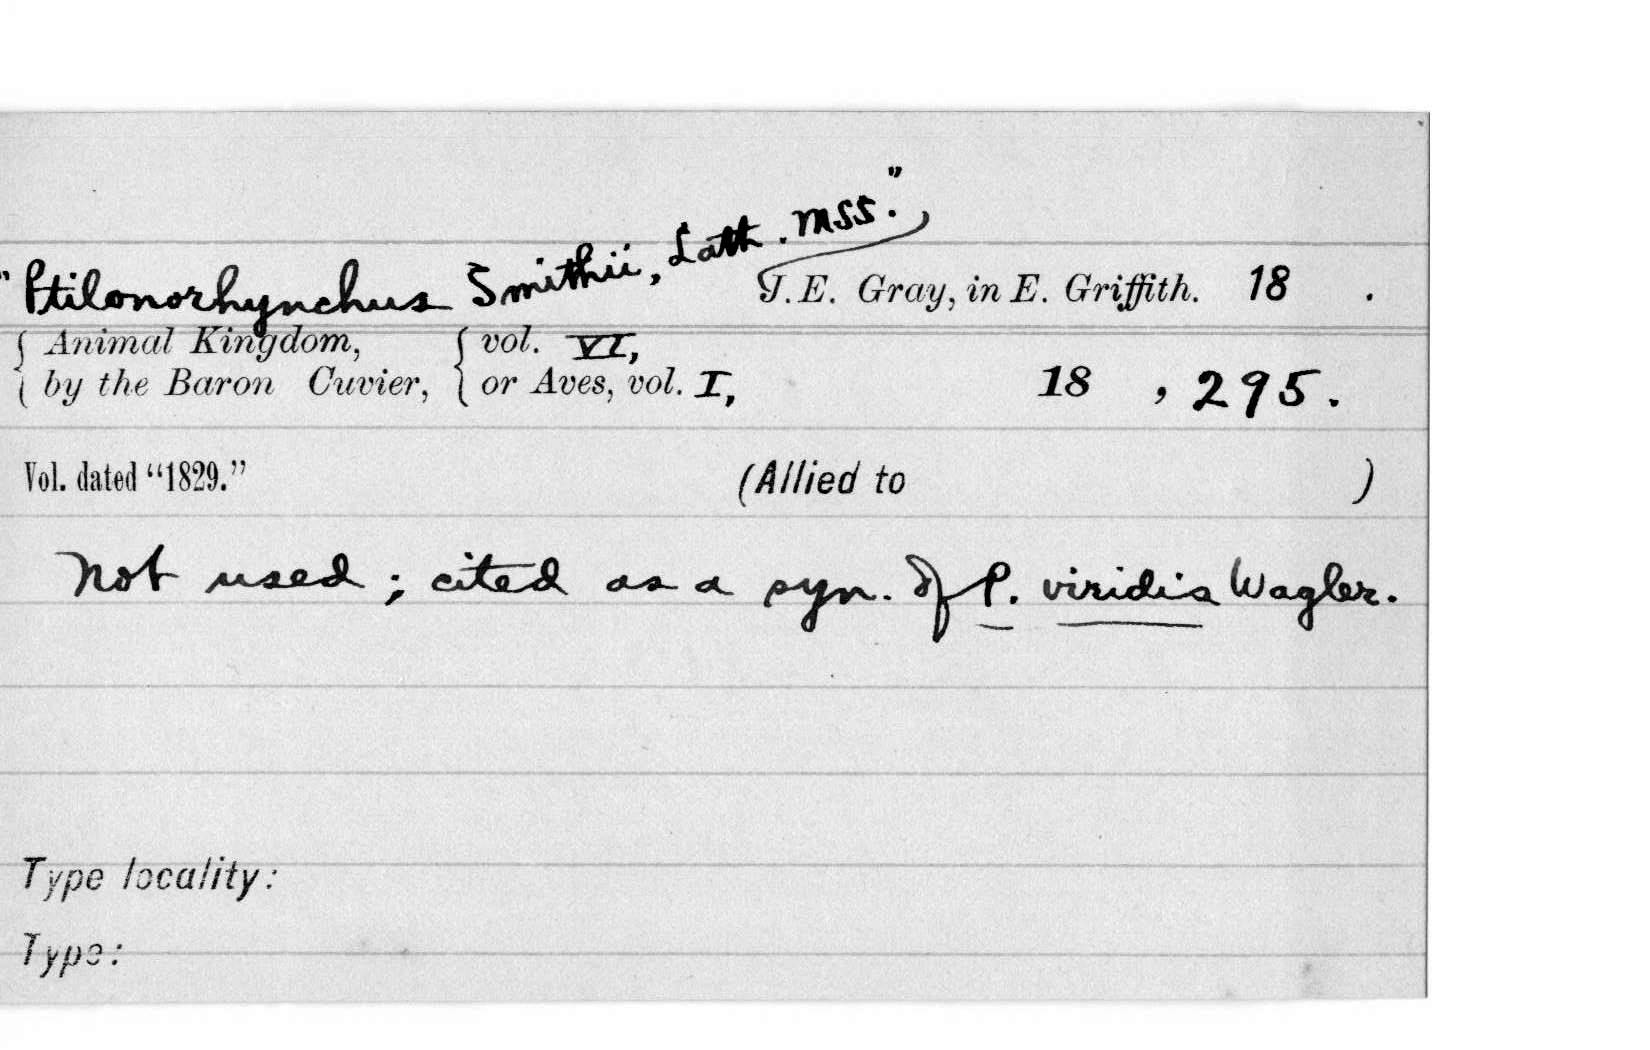 "Ptilonorhynchus Smithii, Lath. MSS." J.E. Gray, in E. Griffith. 18 .
{ Animal Kingdom, { vol. VI,
{ by the Baron Cuvier, { or Aves, vol. I, 18 , 295.
Vol. dated “1829.” (Allied to )
Not used; cited as a syn. of P. viridis Wagler.
Type locality:
Type: